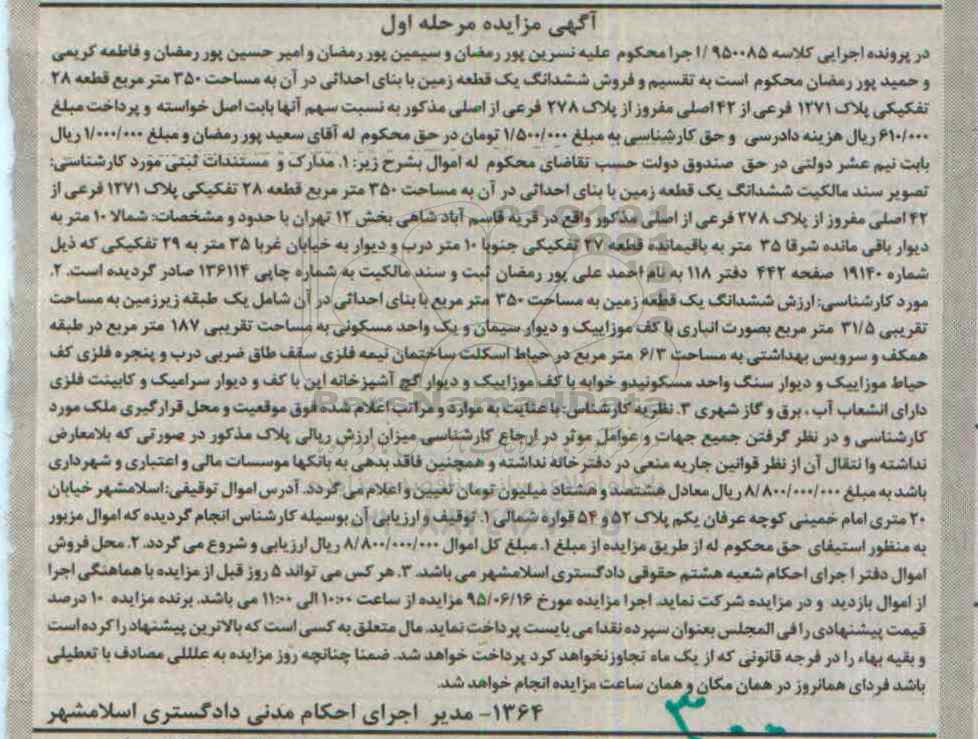 آگهی مزایده مرحله اول
در پرونده اجرایی کلاسه ۹۵۰۰۸۵ /ا جرا محکوم علیه نسرین پور رمضان و سیمین پور رمضان و امیر حسین پور رمضان و فاطمه کریمی
و حمید پور رمضان محکوم است به تقسیم و فروش ششدانگ یک قطعه زمین با بنای احداثی در آن به مساحت ۳۵۰ متر مربع قطعه ۲۸
تفکیکی پلاک ۱۲۷۱ فرعی از ۴۲ اصلی مفروز از پلاک ۲۷۸ فرعی از اصلی مذکور به نسبت سهم آنها بابت اصل خواسته و پرداخت مبلغ
۶۱۰/۰۰۰ ریال هزینه دادرسی و حق کارشناسی به مبلغ ۱/۵۰۰/۰۰۰ تومان در حق محکوم له آقای سعید پور رمضان و مبلغ ۱/۰۰۰/۰۰۰ ریال
بابت نیم عشر دولتی در حق صندوق دولت حسب تقاضای محکوم له اموال بشرح زیر: ۱. مدارک و مستندات ثبتی مورد کارشناسی:
تصویر سند مالکیت ششدانگ یک قطعه زمین با بنای احداثی در آن به مساحت ۳۵۰ متر مربع قطعه ۲۸ تفکیکی پلاک ۱۲۷۱ فرعی از
۴۲ اصلی مفروز از پلاک ۲۷۸ فرعی از اصلی مذکور واقع در قریه قاسم آباد شاهی بخش ۱۲ تهران با حدود و مشخصات: شمالا ۱۰ متر به
دیوار باقی مانده شرقا ۳۵ متر به باقیمانده قطعه ۲۷ تفکیکی جنوبا ۱۰ متر درب و دیوار به خیابان غربا ۳۵ متر به ۲۹ تفکیکی که ذیل
شماره ۱۹۱۴۰ صفحه ۴۴۲ دفتر ۱۱۸ به نام احمد علی پور رمضان ثبت و سند مالکیت به شماره چاپی ۱۳۶۱۱۴ صادر گردیده است. ۲.
مورد کارشناسی: ارزش ششدانگ یک قطعه زمین به مساحت ۳۵۰ متر مربع با بنای احداثی در آن شامل یک طبقه زیرزمین به مساحت
تقریبی ۳۱/۵ متر مربع بصورت انباری با کف موزاییک و دیوار سیمان و یک واحد مسکونی به مساحت تقریبی ۱۸۷ متر مربع در طبقه
همکف و سرویس بهداشتی به مساحت ۶/۳ متر مربع در حیاط اسکلت ساختمان نیمه فلزی سقف طاق ضربی درب و پنجره فلزی کف
حیاط موزاییک و دیوار سنگ واحد مسکونیدو خوابه با کف موزاییک و دیوار گچ آشپزخانه اپن با کف و دیوار سرامیک و کابینت فلزی
دارای انشعاب آب ، برق و گاز شهری ۳. نظریه کارشناس: با عنایت به موارد و مراتب اعلام شده فوق موقعیت و محل قرارگیری ملک مورد
کارشناسی و در نظر گرفتن جمیع جهات و عوامل موثر در ارجاع کارشناسی میزان ارزش ریالی پلاک مذکور در صورتی که بلامعارض
نداشته وا نتقال آن از نظر قوانین جاریه منعی در دفتر خانه نداشته و همچنین فاقد بدهی به بانکها موسسات مالی و اعتباری و شهرداری
باشد به مبلغ ۸/۸۰۰/۰۰۰/۰۰۰ ریال معادل هشتصد و هشتاد میلیون تومان تعیین و اعلام می گردد. آدرس اموال توقیفی: اسلامشهر خیابان
۲۰ متری امام خمینی کوچه عرفان یکم پلاک ۵۲ و ۵۴ قواره شمالی ۱. توقیف و ارزیابی آن بوسیله کارشناس انجام گردیده که اموال مزبور
به منظور استیفای حق محکوم له از طریق مزایده از مبلغ ۱. مبلغ کل اموال ۸/۸۰۰/۰۰۰/۰۰۰ ریال ارزیابی و شروع می گردد. ۲. محل فروش
اموال دفتر ا جرای احکام شعبه هشتم حقوقی دادگستری اسلامشهر می باشد. ۳. هر کس می تواند ۵ روز قبل از مزایده با هماهنگی اجرا
از اموال بازدید و در مزایده شرکت نماید. اجرا مزایده مورخ ۹۵/۰۶/۱۶ مزایده از ساعت ۱۰:۰۰ الی ۱۱:۰۰ می باشد. برنده مزایده ۱۰ درصد
قیمت پیشنهادی را فی المجلس بعنوان سپرده نقدا می بایست پرداخت نماید. مال متعلق به کسی است که بالاترین پیشنهاد را کرده است
و بقیه بهاء را در فرجه قانونی که از یک ماه تجاوز نخواهد کرد پرداخت خواهد شد. ضمنا چنانچه روز مزایده به علللی مصادف با تعطیلی
باشد فردای همانروز در همان مکان و همان ساعت مزایده انجام خواهد شد.
۱۳۶۴- مدیر اجرای احکام مدنی دادگستری اسلامشهر